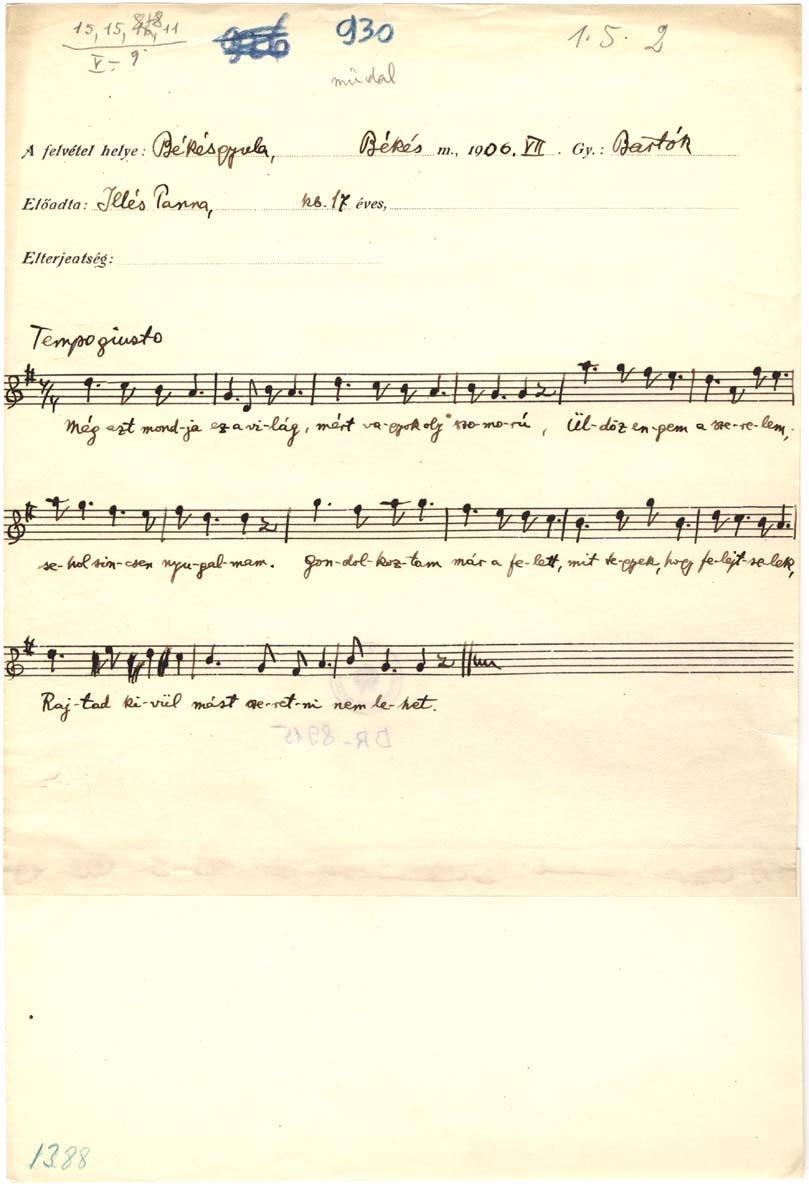 15, 15, 8+8, 11
V - 9
930
1. 5. 2
műdal
A felvétel helye: Békésgyula, Békés m., 1906. VII. Gy.: Bartók
Előadta: Illés Panna, kb. 17 éves,
Elterjedtség:
Tempo giusto
Még azt mond-ja ez a vi-lág, mért va-gyok oly szo-mo-rú, Ül-döz en-gem a sze-re-lem,
se-hol sin-csen nyu-gal-mam. Gon-dol-koz-tam már a fe-lett, mit te-gyek, hogy fe-lejt-se-lek,
Raj-tad ki-vül mást sze-ret-ni nem le-het.
1388